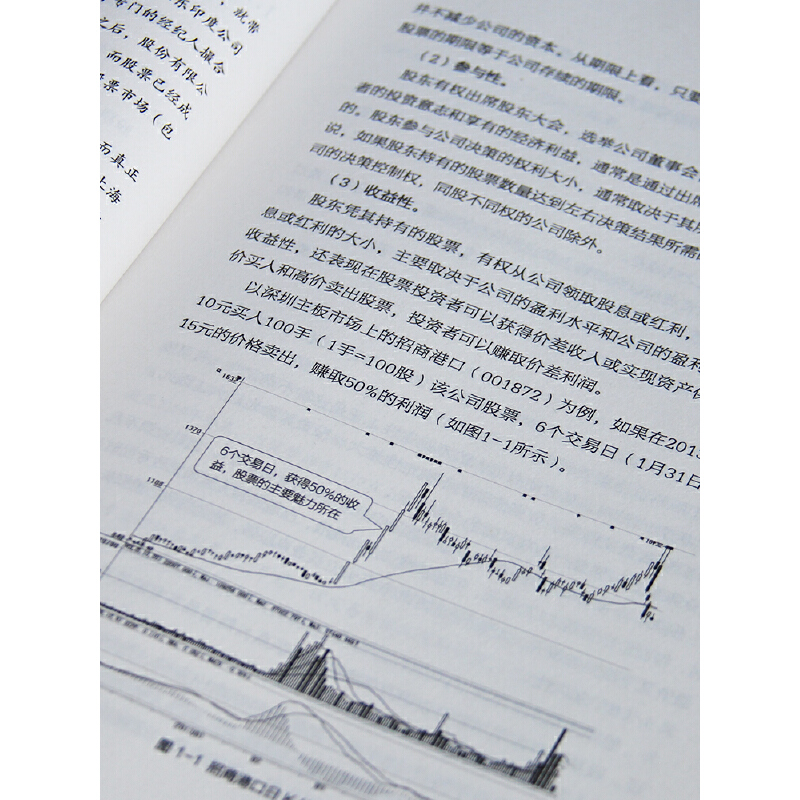 ，就带
东印度公司
专门的经纪人撮合
之后，股份有限公
而股票已经成
票市场（包
而真正
上海
并不减少公司的资本。从期限上看，只要
股票的期限等于公司存续的期限。
（2）参与性。
股东有权出席股东大会，选举公司董事会
者的投资意志和享有的经济利益，通常是通过出席
的。股东参与公司决策的权利大小，通常取决于其
说，如果股东持有的股票数量达到左右决策结果所需
司的决策控制权，同股不同权的公司除外。
（3）收益性。
股东凭其持有的股票，有权从公司领取股息或红利，
息或红利的大小，主要取决于公司的盈利水平和公司的盈利
收益性，还表现在股票投资者可以获得价差收入或实现资产
价买入和高价卖出股票，投资者可以赚取价差利润。
以深圳主板市场上的招商港口（001872）为例，如果在2013
10元买入100手（1手=100股）该公司股票，6个交易日（1月31日
15元的价格卖出，赚取50%的利润（如图1-1所示）。
6个交易日，获得50%的收
益，股票的主要魅力所在
图 1-1 招商港口日K